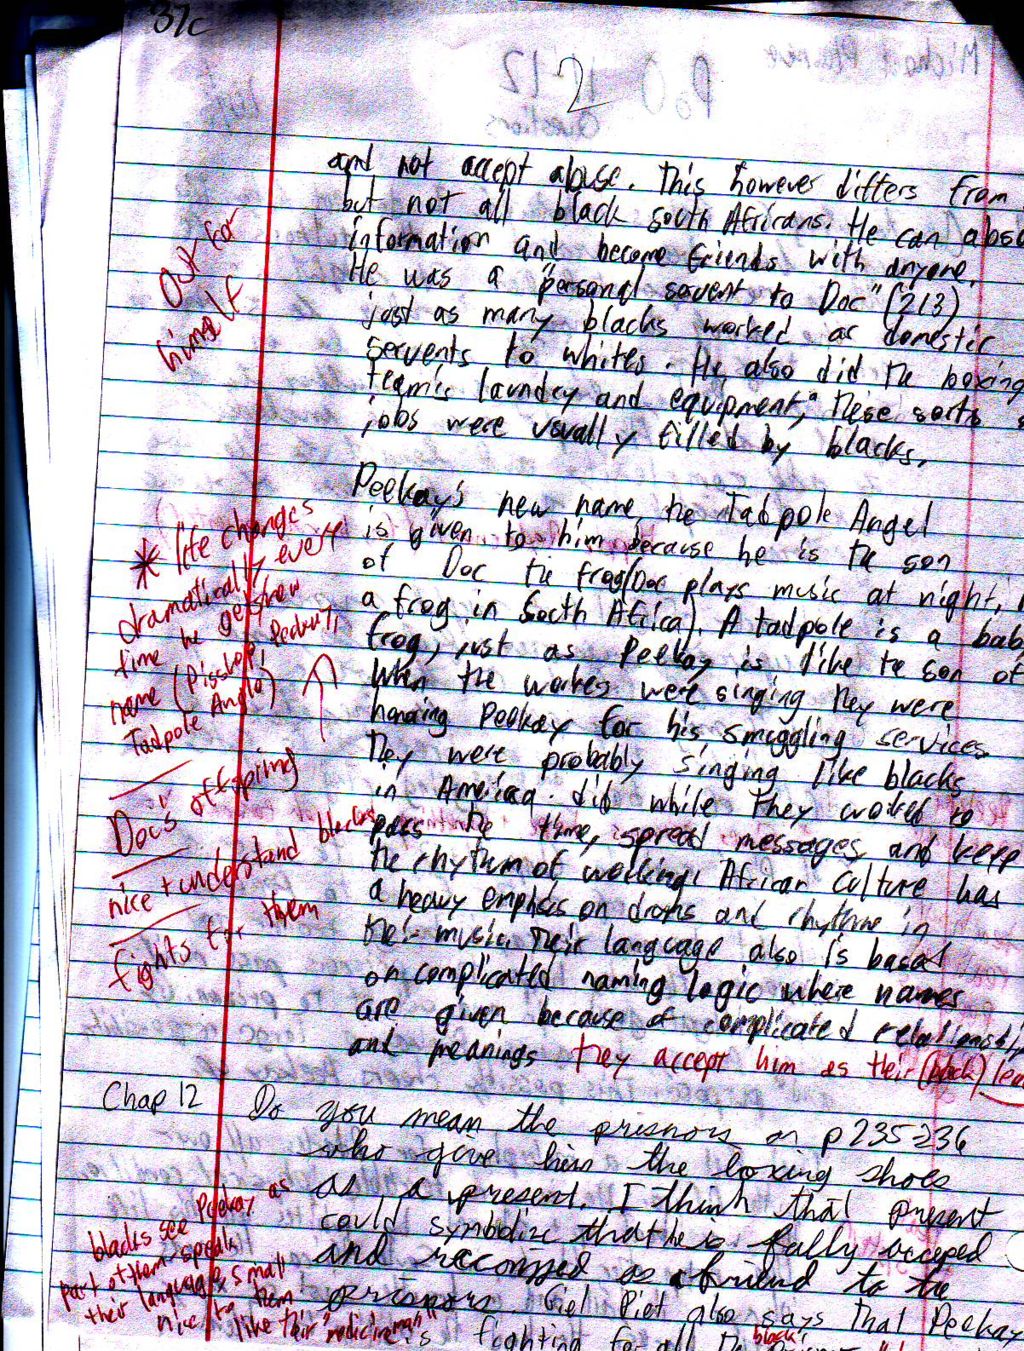 37c
2
and not accept abuse. This however differs from
but not all black south Africans. He can abso
information and become friends with anyone.
He was a "personal servent to Doc" (213)
just as many blacks worked as domestic
servents to whites. He also did the boxing
team's laundry and equipment, these sorts
jobs were usually filled by blacks.
Out for
himself
Peekay's new name the Tadpole Angel
is given to him because he is the son
of Doc the frog (Doc plays music at night,
a frog in South Africa). A tadpole is a bab
frog, just as Peekay is like the son of
When the workes were singing they were
honoring Peekay for his smuggling services
They were probably singing like blacks
in America did while they worked to
pass the time, spread messages, and keep
the rhythm of working. African culture has
a heavy emphsis on drums and rhythme in
their music. Their language also is based
on complicated naming logic where names
are given because of complicated relationship
and meanings they accept him as their (black) lea
* life changes
dramatically every
time he gets new
name (Pisskop,
Tadpole Anglo)
Doc's offspring
nice + understand blacks
fights for them
Chap 12 Do you mean the prisnors on p235-236
who give him the boxing shoes
as a present. I think that present
could symbolize that he is fully accepted
and reconized as a friend to the
prisnors. Giel Piet also says that Peekay
is fighting for all the
black's
blacks see Peekay as
part of them speaks
their language & small
nice to them
like their "medicine man"